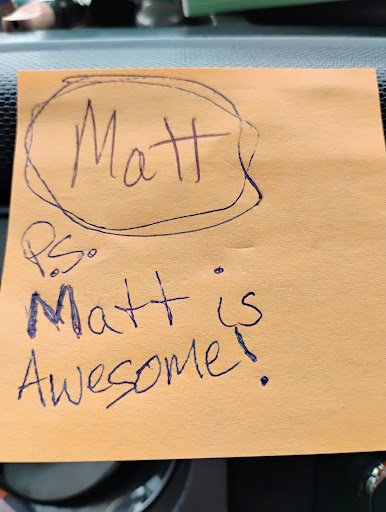 Matt
P.S.
Matt is
Awesome!